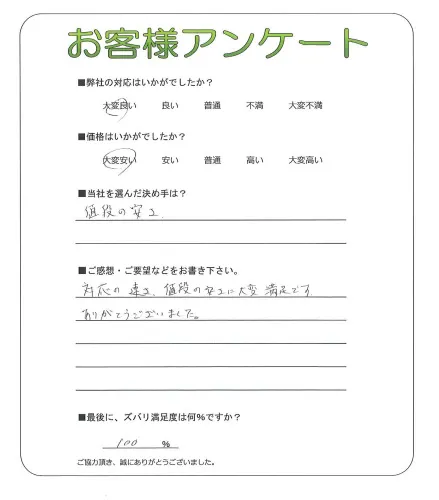 お客様アンケート
■弊社の対応はいかがでしたか？
大変良い 良い 普通 不満 大変不満
■価格はいかがでしたか？
大変安い 安い 普通 高い 大変高い
■当社を選んだ決め手は？
値段の安さ
■ご感想・ご要望などをお書き下さい。
対応の速さ、値段の安さに大変満足です
ありがとうございました。
■最後に、ズバリ満足度は何%ですか？
100 %
ご協力頂き、誠にありがとうございました。